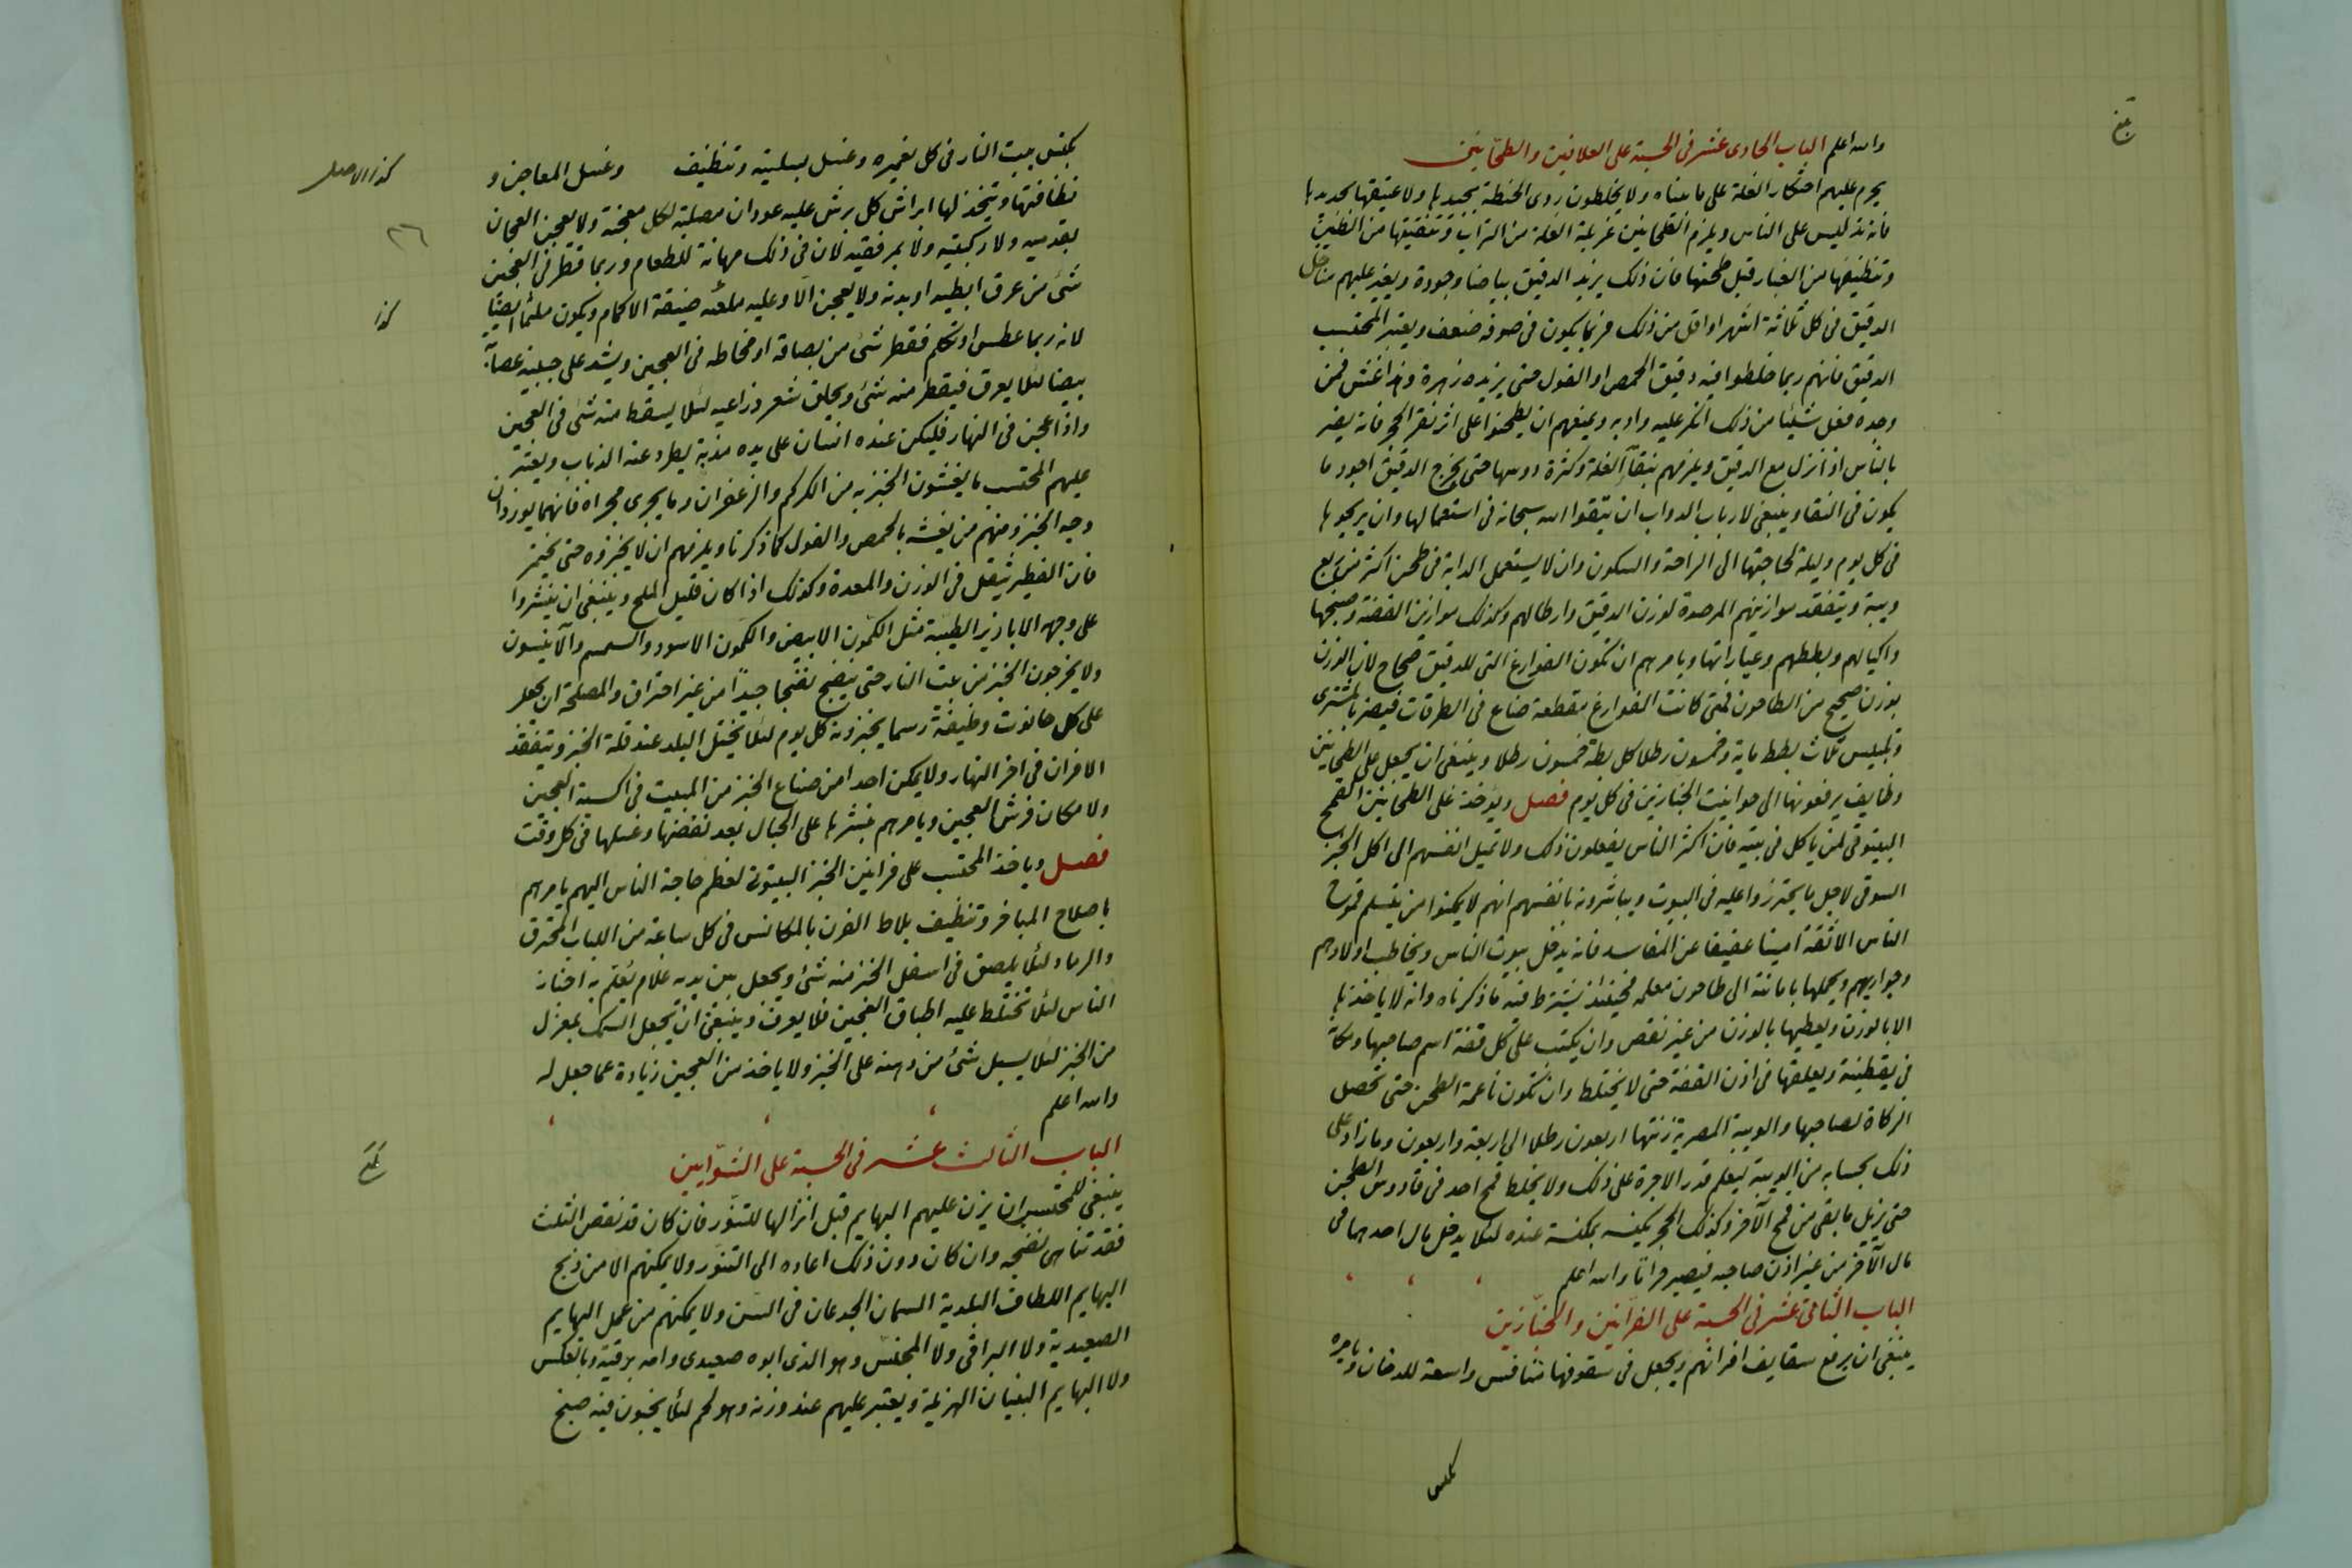 والله اعلم الباب الحادى عشر فى الحسبة على العلافين والطحّانين
يحرم عليهم احتكار الغلة على ما بيناه ولا يخلطون ردى الحنطة بجيدها ولا عتيقها بجديدها
فانه تدليس على الناس ويلزم الطحانين غربلة الغلة من التراب وتنقيتها من الطين
وتنظيفها من الغبار قبل طحنها فان ذلك يزيد الدقيق بياضا وجودة ويغير عليهم مناخل
الدقيق فى كل ثلاثة اشهر او اقل من ذلك فربما يكون فى صوفه ضعف ويعتبر المحتسب
الدقيق فانهم ربما خلطوا فيه دقيق الحمص او الفول حتى يزيده زهرة وهذا غش فمن
وجده فعل شيئا من ذلك انكر عليه وادبه ويمنعهم ان يطحنوا على اثر نقر الحجر فانه يضر
بالناس اذا نزل مع الدقيق ويلزمهم بنقآء الغلة وكثرة دوسها حتى يخرج الدقيق اجود ما
يكون فى النقا وينبغى لارباب الدواب ان يتقوا الله سبحانه فى استعمالها وان يريحوها
فى كل يوم وليلة لحاجتها الى الراحة والسكون وان لا يستعمل الدابة فى طحن اكثر من ربع
ويبة ويتفقد موازينهم المرصدة لوزن الدقيق وارطالهم وكذلك موازين الفضة وصنجها
واكيالهم وبططهم وعياراتها ويامرهم ان تكون الفوارغ التى للدقيق صحاح لان الوزن
بوزن صحيح من الطاحون فمتى كانت الفوارغ مقطعة ضاع فى الطرقات فيضر بالمشترى
وتلبيس ثلاث بطط ماية وخمسون رطلا كل بطة خمسون رطلا وينبغى ان يجعل على الطحانين
وظايف يرفعونها الى حوانيت الخبازين فى كل يوم فصل ويؤخذ على الطحانين القمح
البيتوتى لمن ياكل فى بيته فان اكثر الناس يفعلون ذلك ولا تميل انفسهم الى اكل الخبز
السوقى لاجل ما يحترزوا عليه فى البيوت ويباشرونه بانفسهم انهم لا يمكنوا من يتسلم قموح
الناس الا ثقة امينا عفيفا عن المفاسد فانه يدخل بيوت الناس ويخاطب اولادهم
وجواريهم ويحملها بامانته الى طاحون معلمه فحينئذ يشترط فيه ما ذكرناه وانه لا ياخذها
الا بالوزن ويعطيها بالوزن من غير نقص وان يكتب على كل قفة اسم صاحبها ومكا
فى يقطينة ويعلقها فى اذن القفة حتى لا يختلط وان تكون ناعمة الطحن حتى تحصل
الزكاة لصاحبها والويبة المصرية زنتها اربعون رطلا الى اربعة واربعون وما زاد على
ذلك بحسابه من الويبة ليعلم قدر الاجرة على ذلك ولا يخلط قمح احد فى قادوس الطحن
حتى يزيل ما بقى من قمح الآخر وكذلك الحجر يكنسه بمكنسة عنده لئلا يدخل مال احدهما فى
مال الآخر من غير اذن صاحبه فيصير حراما والله اعلم
الباب الثانى عشر فى الحسبة على الفرّانين والخبّازين
ينبغى ان يرفع سقايف افرانهم ويجعل فى سقوفها منافس واسعة للدخان ويامره
بكنس
بكنس بيت النار فى كل تعميره وغسل بسليته وتنظيف وغسل المعاجن و
كذا الاصل
نظافتها ويتخذ لها ابراش كل برش عليه عودان مصلبة لكل معجنة ولا يعجن العجان
بقدميه ولا ركبتيه ولا بمرفقيه لان فى ذلك مهانة للطعام وربما قطر فى العجين
٢٦
شئ من عرق ابطيه او بدنه ولا يعجن الّا وعليه ملعبه ضيقة الاكمام ويكون ملثما ايضًا
كذا
لانه ربما عطس او تكلم فقطر شئ من بصاقه او مخاطه فى العجين ويشد على جبينه عصابة
بيضا لئلا يعرق فيقطر منه شئ ويحلق شعر ذراعيه لئلا يسقط منه شئ فى العجين
واذا عجن فى النهار فليكن عنده انسان على يده مذبة يطرد عنه الذباب ويعتبر
عليهم المحتسب ما يغشون الخبز به من الكركم والزعفران وما يجرى مجراه فانهما يوردان
وجه الخبز ومنهم من يغشه بالحمص والفول كما ذكرنا ويلزمهم ان لا يخبزوه حتى يختمر
فان الفطير يثقل فى الوزن والمعدة وكذلك اذا كان قليل الملح وينبغى ان ينشروا
على وجهه الابازير الطيبة مثل الكمون الابيض والكمون الاسود والسمسم والآنيسون
ولا يخرجون الخبز من بيت النار حتى ينضج نضجا جيدًا من غير احتراق والمصلحة ان يجعل
على كل حانوت وظيفة رسما يخبزونه كل يوم لئلا يختل البلد عند قلة الخبز ويتفقد
الافران فى اخر النهار ولا يمكن احدا من صناع الخبز من المبيت فى اكسية العجين
ولا مكان فرش العجين ويامرهم بنشرها على الحبال بعد نفضها وغسلها فى كل وقت
فصل وياخذ المحتسب على فرانين الخبز البيتوتى لعظم حاجة الناس اليهم يامرهم
باصلاح المباخر وتنظيف بلاط الفرن بالمكانس فى كل ساعة من اللباب المحترق
والرماد لئلا يلصق فى اسفل الخبز منه شئ ويجعل بين يديه علام يعلم به اخباز
الناس لئلا تختلط عليه اطباق العجين فلا يعرف وينبغى ان يجعل السمك بمعزل
من الخبز لئلا يسيل شئ من دهنه على الخبز ولا ياخذ من العجين زيادة عما جعل له
والله اعلم
الباب الثالث عشر فى الحسبة على الشوّايين
ينبغى للمحتسب ان يزن عليهم البهايم قبل انزالها للتنور فان كان قد نقص الثلث
فقد تناهى نضجه وان كان دون ذلك اعاده الى التنور ولا يمكنهم الا من ذبح
البهايم اللطاف البلدية السمان الجدعان فى السن ولا يمكنهم من عمل البهايم
الصعيدية ولا البراقى ولا المجنّس وهو الذى ابوه صعيدى وامه برقية وبالعكس
ولا البهايم البغيان الهزيلة ويعتبر عليهم عند وزنه وهو لحم لئلا يخبون فيه صنج